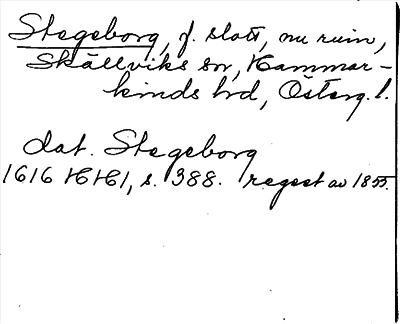 Stegeborg, f. slott, nu ruin,
Skällviks sn, Hammar-
kinds hd, Österg. l.
dat. Stegeborg
1616 HH1, s. 388. regest av 1855.